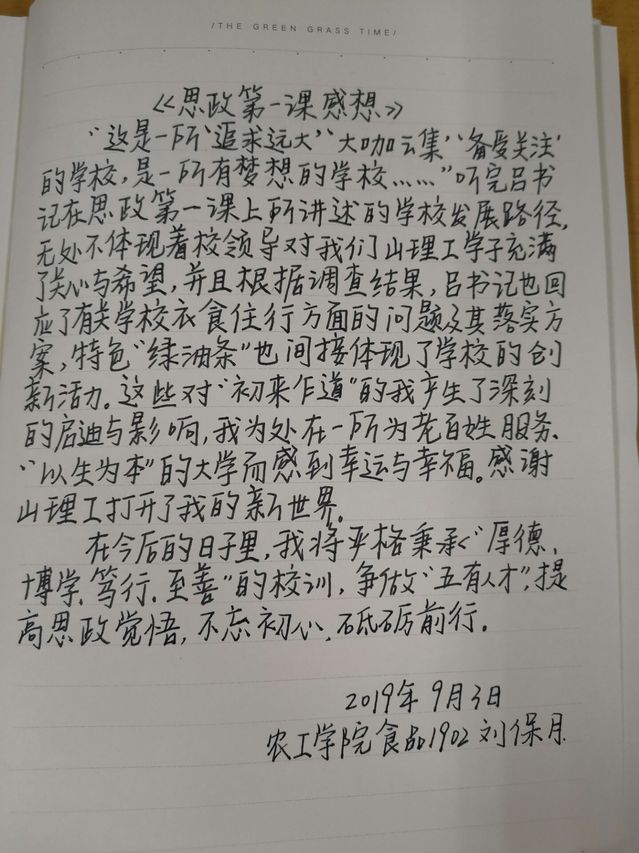 /THE GREEN GRASS TIME/
《思政第一课感想》
“这是一所‘追求远大’‘大咖云集’‘备受关注’
的学校，是一所有梦想的学校……”听完吕书
记在思政第一课上所讲述的学校发展路径，
无处不体现着校领导对我们山理工学子充满
了关心与希望，并且根据调查结果，吕书记也回
应了有关学校衣食住行方面的问题及其落实方
案，特色“绿油条”也间接体现了学校的创
新活力。这些对“初来乍道”的我产生了深刻
的启迪与影响，我为处在一所为老百姓服务、
“以生为本”的大学而感到幸运与幸福。感谢
山理工打开了我的新世界。
在今后的日子里，我将严格秉承“厚德、
博学、笃行、至善”的校训，争做“五有人才”，提
高思政觉悟，不忘初心，砥砺前行。
2019年9月3日
农工学院食品1902 刘保月